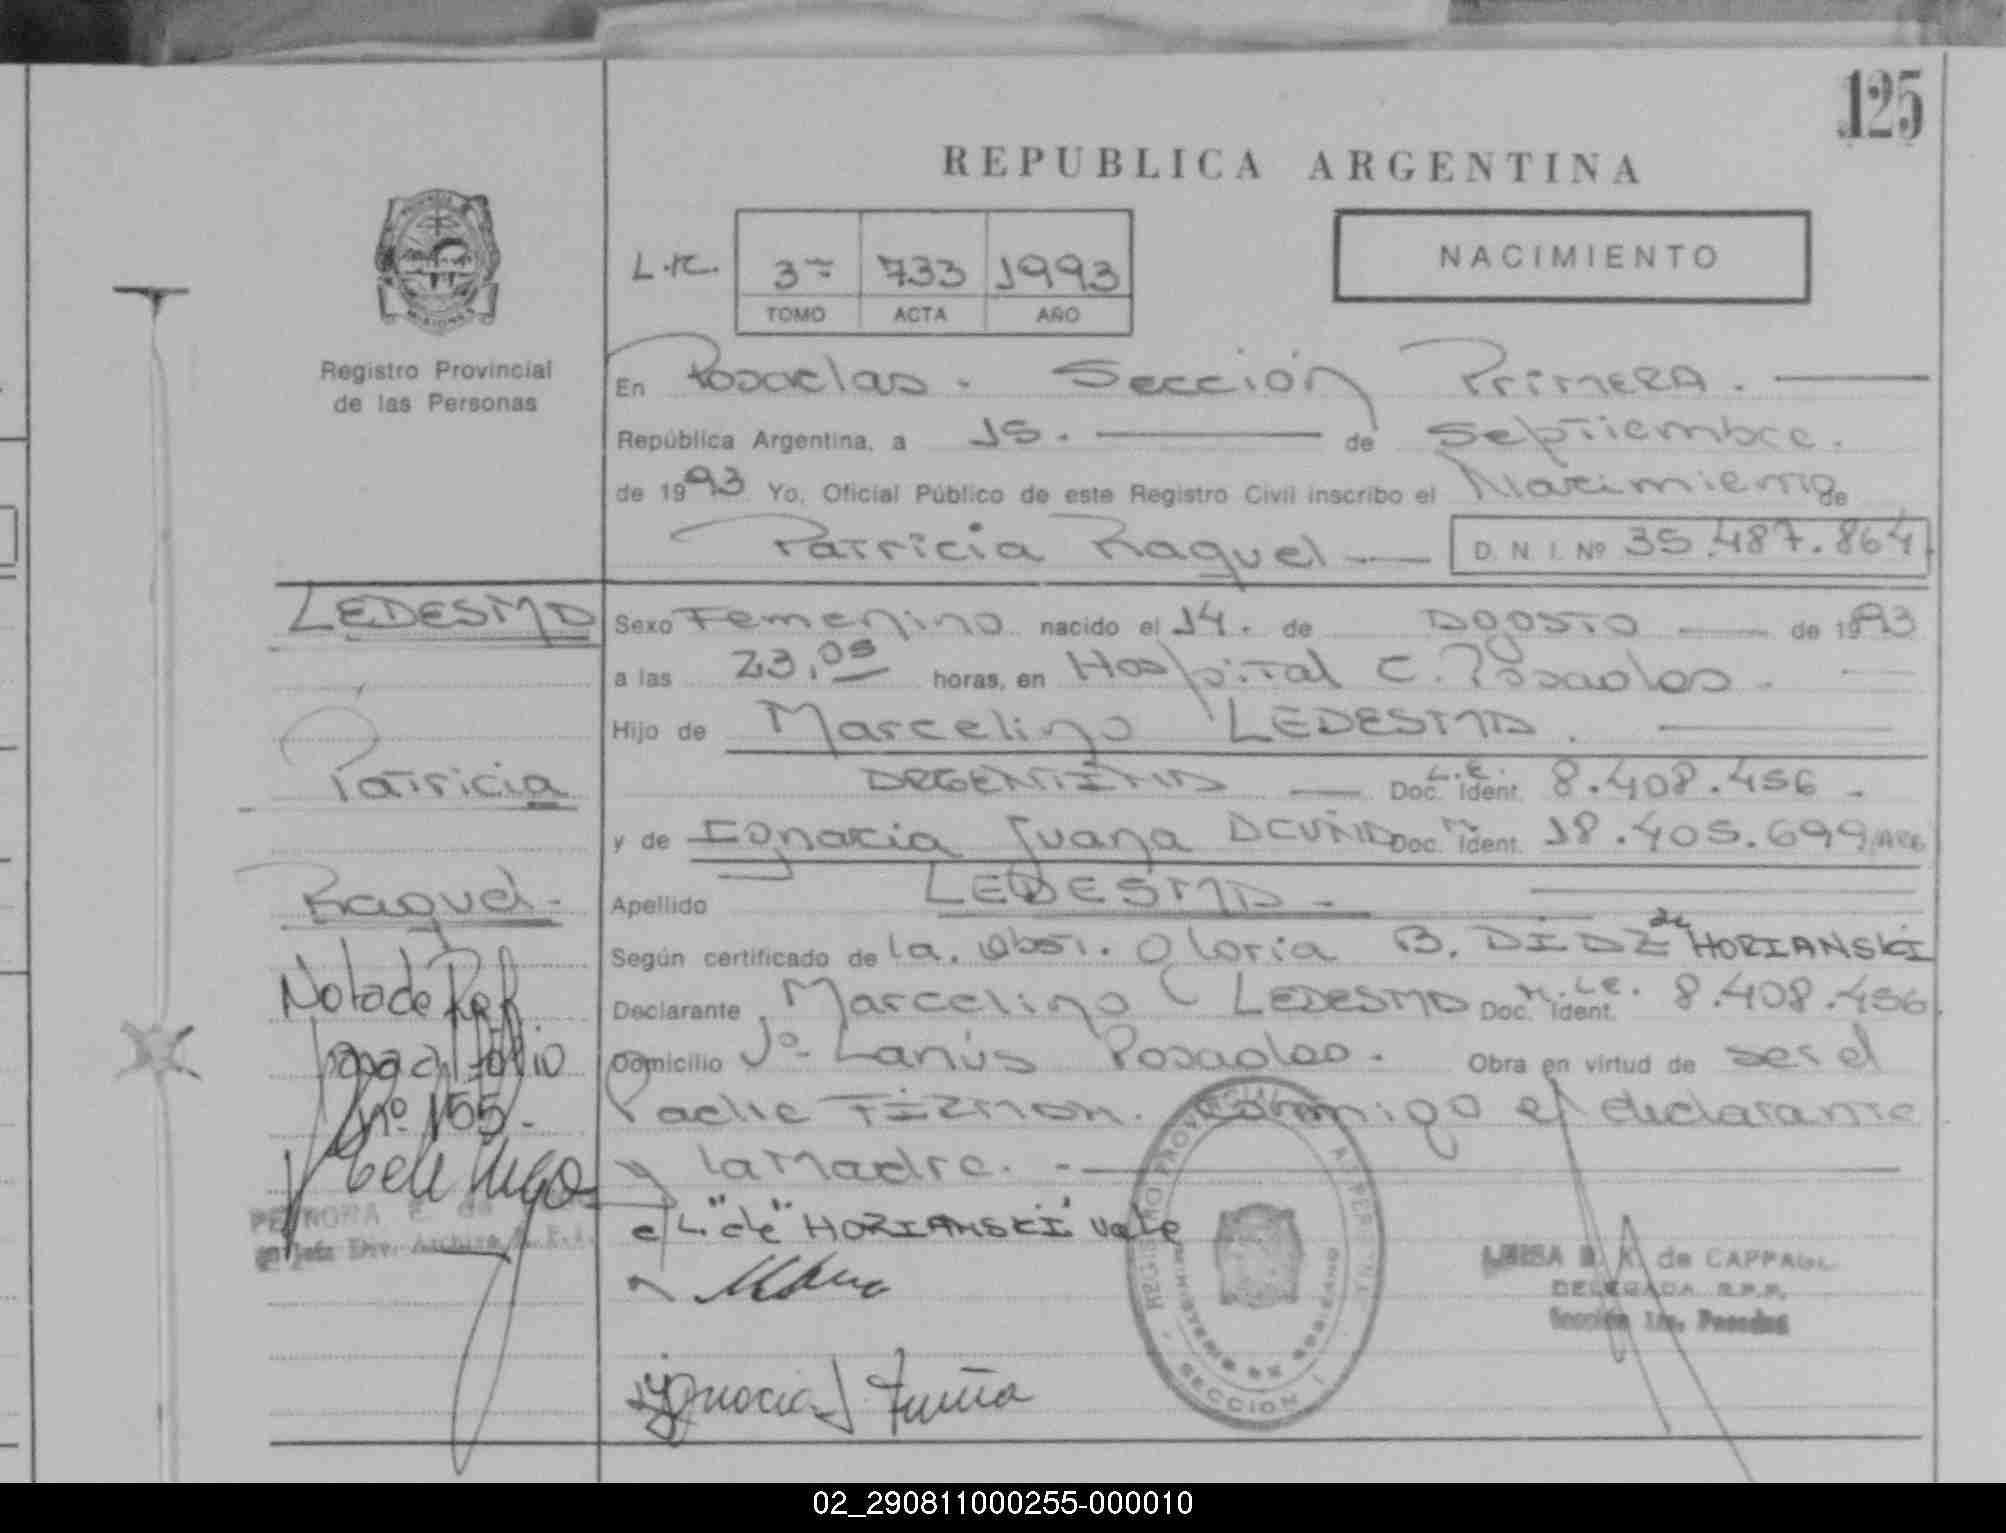 125
REPUBLICA ARGENTINA
NACIMIENTO
3º 733 1993
TOMO ACTA AÑO
MISIONES
Registro Provincial
de las Personas
En Posadas. Sección Primera.
República Argentina, a 15. de Septiembre.
de 1993 Yo, Oficial Público de este Registro Civil inscribo el Nacimiento de
Patricia Raquel D. N. I. Nº 35.487.864
LEDESMA
Patricia
Raquel.
Nota de Ref
pasa al folio
nº 155.
Sexo Femenino nacido el 14. de AGOSTO de 1993
a las 23,05 horas, en Hospital C. Posadas.
Hijo de Marcelino LEDESMA.
ARGENTINA L.E. Doc. Ident. 8.408.456.
y de Ignacia Juana ACUÑA Doc. Ident. 18.405.699 ARG
Apellido LEDESMA.
Según certificado de la. Obst. Gloria B. DIAZ de HORIANSKI
Declarante Marcelino LEDESMA Doc. Ident. M.I.E. 8.408.456
Domicilio Vª Lanús Posadas. Obra en virtud de ser el
Padre FIRMAN. Conmigo el declarante
y la Madre.
e/L. "de" HORIANSKI Vale
PETRONA E. de
REGISTRO PROVINCIAL
MINISTERIO DE GOBIERNO
SECCION I
LUISA de CAPPA
DELEGADA R.P.P.
Sección 1ra. Posadas
02_290811000255-000010